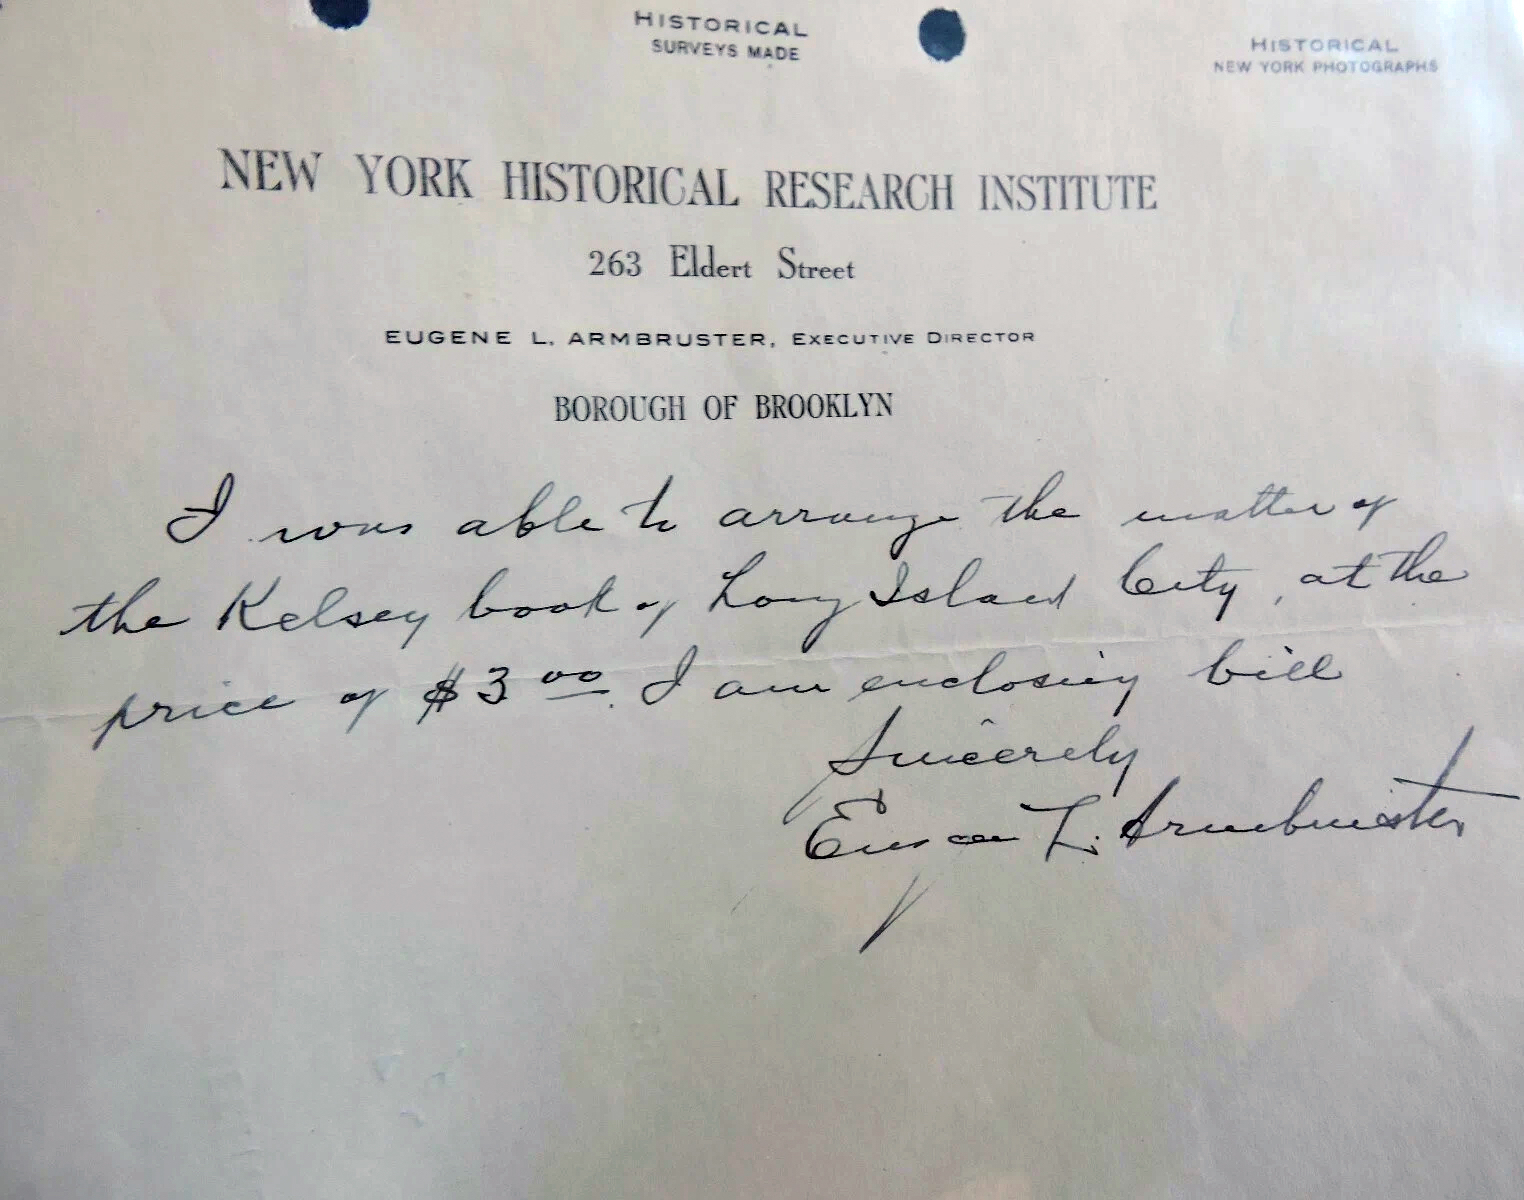 HISTORICAL
SURVEYS MADE
HISTORICAL
NEW YORK PHOTOGRAPHS
NEW YORK HISTORICAL RESEARCH INSTITUTE
263 Eldert Street
EUGENE L. ARMBRUSTER, EXECUTIVE DIRECTOR
BOROUGH OF BROOKLYN
I was able to arrange the matter of
the Kelsey book of Long Island City, at the
price of $3 00. I am enclosing bill
Sincerely
Eugene L. Armbruster